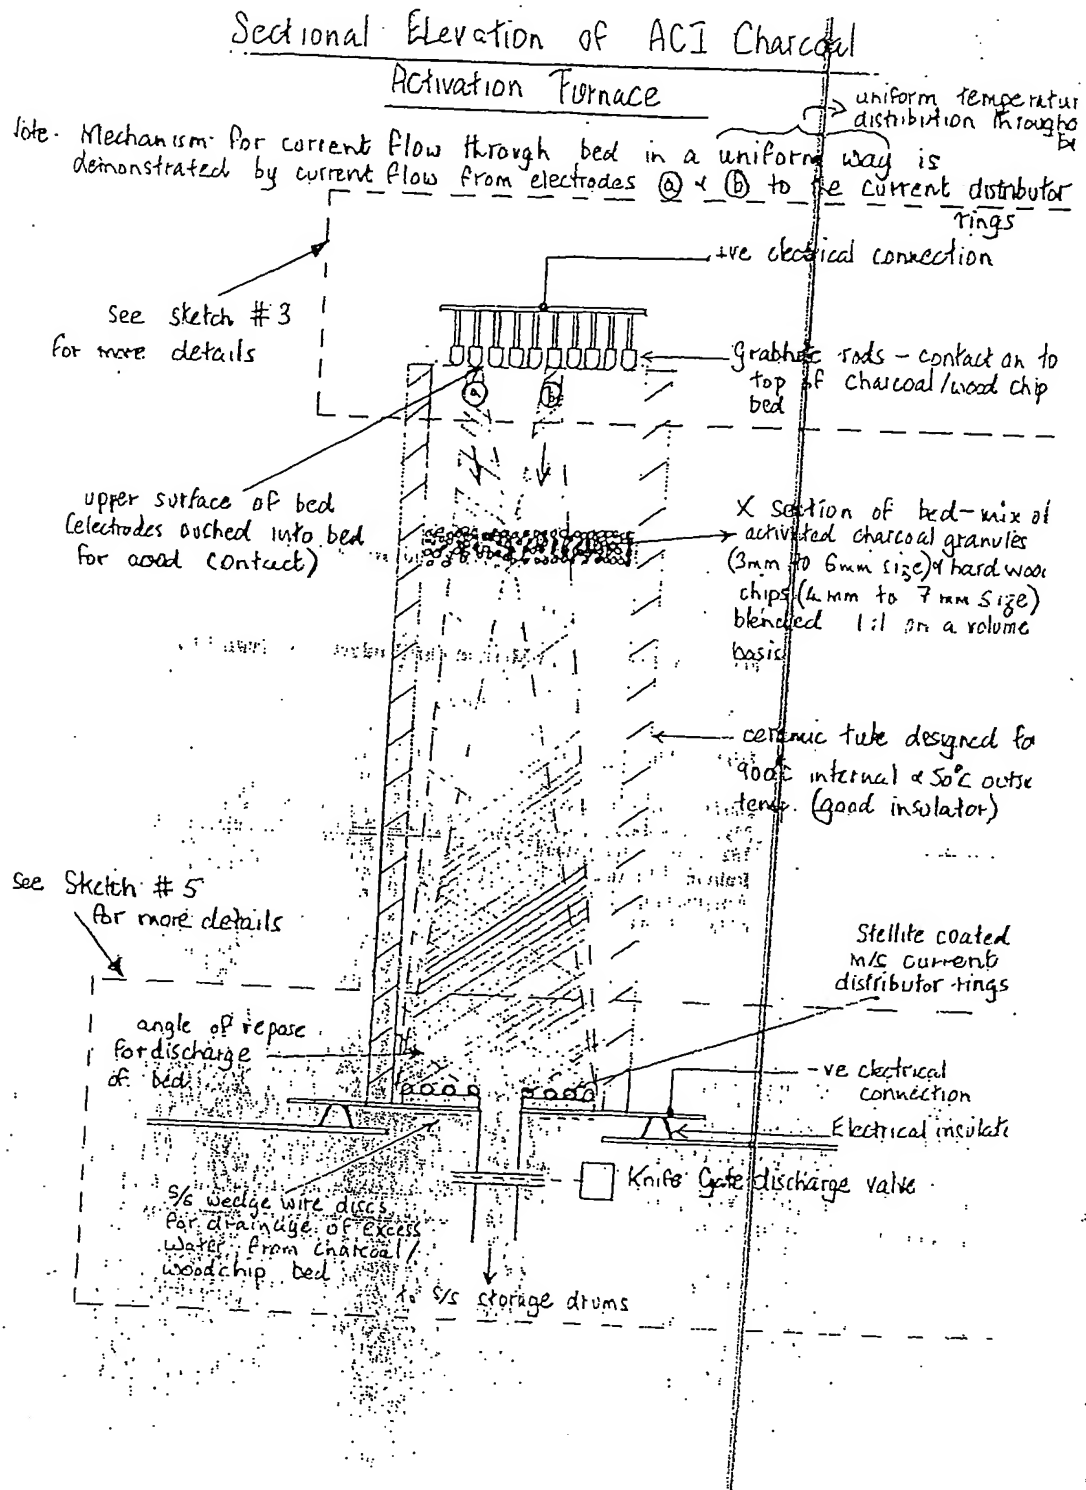 Sectional Elevation of ACI Charcoal
Activation Furnace
uniform temperatur
distribution througho
be
Note. Mechanism for current flow through bed in a uniform way is
demonstrated by current flow from electrodes (a) & (b) to the current distributor
rings
+ve electrical connection
See sketch #3
for more details
Graphite rods - contact on to
top of charcoal/wood chip
bed
a
b
upper surface of bed
(electrodes pushed into bed
for good contact)
X section of bed-mix of
activated charcoal granules
(3mm to 6mm size) & hard woo
chips (4mm to 7mm size)
blended 1:1 on a volume
basis
ceramic tube designed fo
900°C internal & 50°C outsi
temp. (good insulator)
See Sketch #5
for more details
Stellite coated
m/s current
distributor rings
angle of repose
for discharge
of bed
-ve electrical
connection
Electrical insulat
Knife Gate discharge valve
S/S wedge wire discs
for drainage of excess
water from charcoal/
woodchip bed
to S/S storage drums